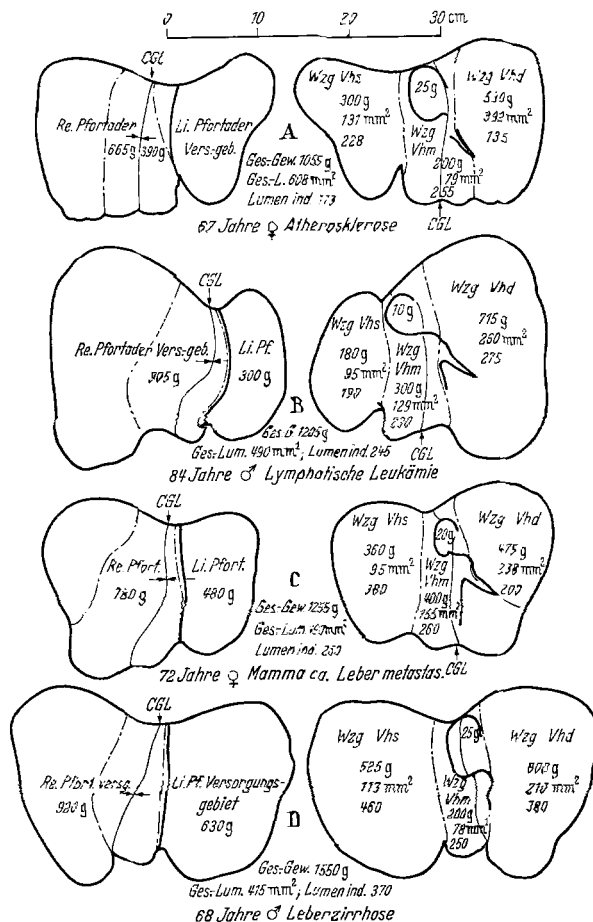 0 10 20 30 cm
CGL
Re. Pfortader
665g 390g
Li. Pfortader
Vers.-geb.
A
Wzg Vhs
300g
131 mm²
228
25g
Wzg
Vhm
200g
79 mm²
255
Wzg Vhd
530g
392 mm²
135
CGL
Ges-Gew. 1055 g
Ges-L. 608 mm²
Lumen ind. 173
67 Jahre ♀ Atherosklerose
CGL
Re. Pfortader Vers-geb.
905g
Li. Pf.
300g
B
Wzg Vhs
180g
95 mm²
190
10g
Wzg
Vhm
300g
129 mm²
230
Wzg Vhd
715g
260 mm²
275
CGL
Ges-G 1205g
Ges-Lum. 490 mm²; Lumen ind. 245
84 Jahre ♂ Lymphatische Leukämie
CGL
Re. Pfort.
780g
Li. Pfort.
480g
C
Wzg Vhs
360g
95 mm²
380
20g
Wzg
Vhm
400g
155 mm²
260
Wzg Vhd
475g
238 mm²
200
CGL
Ges-Gew. 1255g
Ges-Lum. mm²
Lumen ind.
72 Jahre ♀ Mamma ca. Leber metastas.
CGL
Re. Pfort. versg.
920g
Li. Pf. Versorgungs-
gebiet
630g
D
Wzg Vhs
525g
113 mm²
460
25g
Wzg
Vhm
200g
78 mm²
250
Wzg Vhd
800g
210 mm²
380
Ges-Gew. 1550g
Ges-Lum. 415 mm²; Lumen ind. 370
68 Jahre ♂ Leberzirrhose